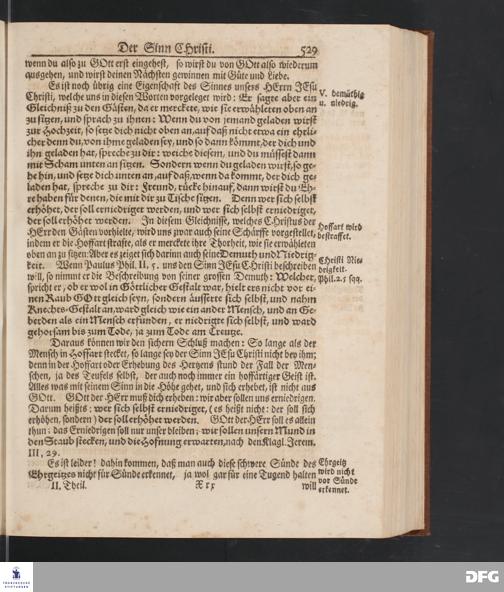 Der Sinn CHristi. 529
wenn du also zu GOtt erst eingehest, so wirst du von GOtt also wiederum
ausgehen, und wirst deinen Nächsten gewinnen mit Güte und Liebe.
Es ist noch übrig eine Eigenschaft des Sinnes unsers HErrn JEsu
Christi, welche uns in diesen Worten vorgeleget wird: Er sagte aber ein
Gleichniß zu den Gästen, da er merckete, wie sie erwähleten oben an
zu sitzen, und sprach zu ihnen: Wenn du von jemand geladen wirst
zur Hochzeit, so setze dich nicht oben an, auf daß nicht etwa ein ehrli-
cher denn du, von ihme geladen sey, und so dann kommt, der dich und
ihn geladen hat, spreche zu dir: weiche diesem, und du müssest dann
mit Scham unten an sitzen. Sondern wenn du geladen wirst, so ge-
he hin, und setze dich unten an, auf daß, wenn da kommt, der dich ge-
laden hat, spreche zu dir: Freund, rücke hinauf, dann wirst du Eh-
re haben für denen, die mit dir zu Tische sitzen. Denn wer sich selbst
erhöhet, der soll erniedriget werden, und wer sich selbst erniedriget,
der soll erhöhet werden. In diesem Gleichnisse, welches CHristus der
HErr den Gästen vorhielte, wird uns zwar auch seine Schärffe vorgestellet,
indem er die Hoffart strafte, als er merckete ihre Thorheit, wie sie erwähleten
oben an zu sitzen: Aber es zeiget sich darinn auch seine Demuth und Niedrig-
keit. Wenn Paulus Phil. II, 5. uns den Sinn JEsu CHristi beschreiben
will, so nimmt er die Beschreibung von seiner grossen Demuth: Welcher,
spricht er, ob er wol in Göttlicher Gestalt war, hielt ers nicht vor ei-
nen Raub GOtt gleich seyn, sondern äusserte sich selbst, und nahm
Knechts-Gestalt an, ward gleich wie ein ander Mensch, und an Ge-
berden als ein Mensch erfunden, er niedrigte sich selbst, und ward
gehorsam bis zum Tode, ja zum Tode am Creutze.
Daraus können wir den sichern Schluß machen: So lange als der
Mensch in Hoffart stecket, so lange sey der Sinn JEsu Christi nicht bey ihm;
denn in der Hoffart oder Erhebung des Hertzens stund der Fall der Men-
schen, ja des Teufels selbst, der auch noch immer ein hoffärtiger Geist ist.
Alles was mit seinem Sinn in die Höhe gehet, und sich erhebet, ist nicht aus
GOtt. GOtt der HErr muß dich erheben: wir aber sollen uns erniedrigen.
Darum heißts: wer sich selbst erniedriget, (es heißt nicht: der soll sich
erhöhen, sondern) der soll erhöhet werden. GOtt der HErr soll es allein
thun: das Erniedrigen soll nur unser bleiben: wir sollen unsern Mund in
den Staub stecken, und die Hofnung erwarten, nach den Klagl. Jerem.
III, 29.
Es ist leider! dahin kommen, daß man auch diese schwere Sünde des
Ehrgeitzes nicht für Sünde erkennet, ja wol gar für eine Tugend halten
II. Theil. Xxx will
V. demüthig
u. niedrig.
Hoffart wird
bestraffet.
Christi Nie-
drigkeit.
Phil. 2. 5 sqq.
Ehrgeitz
wird nicht
vor Sünde
erkennet.
DFG